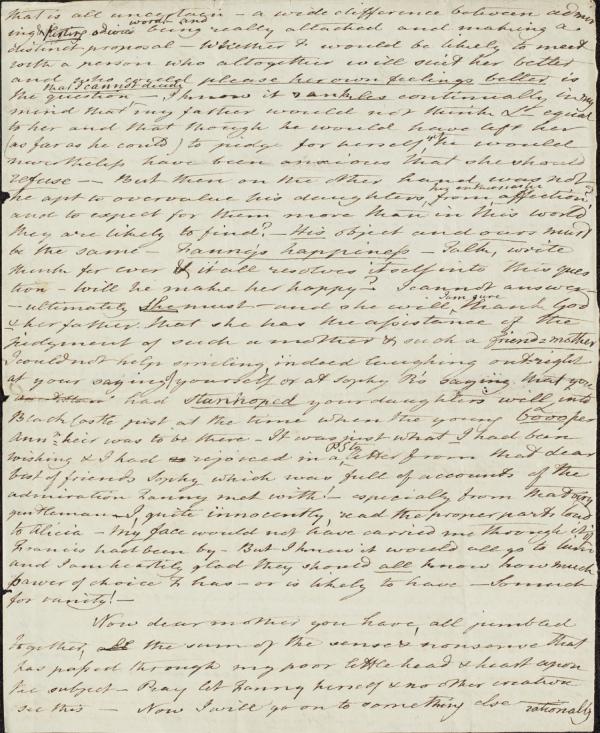 that is all uncertain – a wide difference between admir
ing & flirting & being really attached and making a
words and
distinct proposal – Whether F would be likely to meet
with a person who altogether will suit her better
and who could please her own feelings better is
that I cannot decide
the question – I know it rankles continually in my
mind that my father would not think L– equal
to her and that though he would have left her
(as far as he could) to judge for herself yet he would
nevertheless have been anxious that she should
refuse – But then on the other hand was not
he apt to overvalue his daughters from affection,
his enthusiastic
and to expect for them more than in this world
they are likely to find? – His object and ours must
be the same – Fanny's happiness – Talk, write
think for ever & it all resolves itself into this ques
tion – will he make her happy? I cannot answer –
– ultimately She must – and she will, thank God
I am sure
& her father that she has the assistance of the
judgment of such a mother & such a friend & mother
I could not help smiling indeed laughing outright
at your saying of yourself or at Sophy R's saying that you
had Stanhoped your daughters well into
Black Castle just at the time when the young 6000 per
ann: heir was to be there – It was just what I had been
wishing & I had rejoiced in a letter from that dear
best of friends Sophy which was full of accounts of the
admiration Fanny met with! – especially from that
gentleman – I, quite innocently, read the proper parts loud
to Alicia – My face would not have carried me through it if
Francis had been by – But I knew it would all go to him
and I am heartily glad they should all know how much
power of choice F has – or is likely to have – So much
for vanity! –
Now dear mother you have, all jumbled
together, all the sum of the sense & nonsense that
has passed through my poor little head & heart upon
the subject – Pray let Fanny herself & no other creature
see this – Now I will go on to something else – rationally